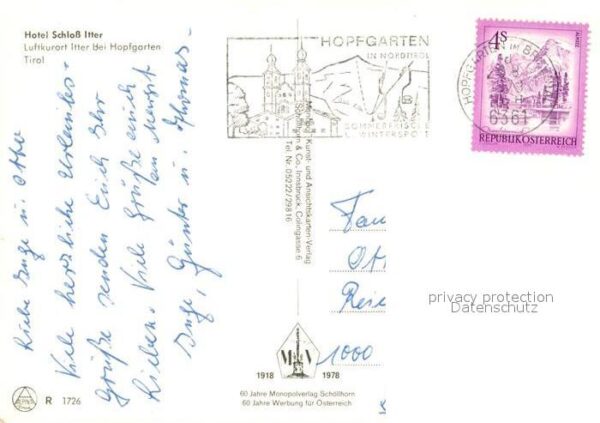 Hotel Schloß Itter
Luftkurort Itter Bei Hopfgarten
Tirol
Liebe Inge u. Otto
Viele herzliche Urlaubs-
grüße senden Euch Ihr
Lieben. Viele Grüße auch
an
Inge, Günter u. Thomas.
HOPFGARTEN
IN NORDTIROL
SOMMERFRISCHE
WINTERSPORT
HOPFGARTEN IM
6361
4S
ALMSEE
REPUBLIK ÖSTERREICH
Kunst- und Ansichtskarten-Verlag
Schöllhorn & Co., Innsbruck, Colingasse 6
Tel. Nr. 05222/29816
Fam
Ot
1000
privacy protection
Datenschutz
M V
1918 1978
60 Jahre Monopolverlag Schöllhorn
60 Jahre Werbung für Österreich
R 1726